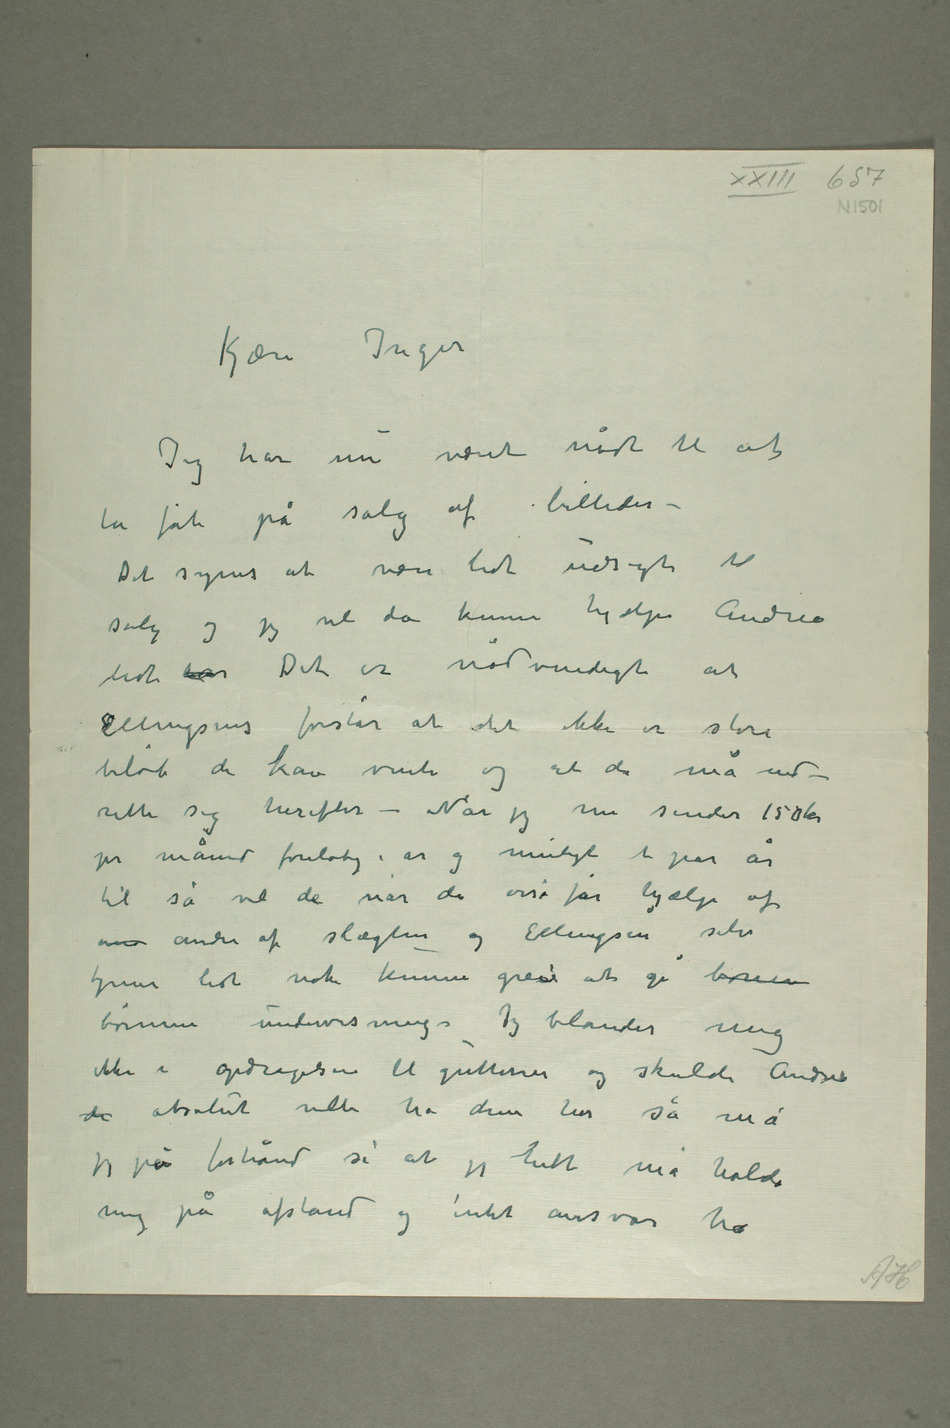 XXIII 687
N1501
Kjære Inger
Jeg har nu været nødt til at
ta fat på salg af billeder –
Det synes at være lidt udsigt til
salg og jeg vil da kunne hjælpe Andrea
lidt Det er nødvendigt at
Ellingsens forstår at det ikke er store
beløb de kan vente og at de må ind-
rette sig herefter – Når jeg nu sender 150 kr
pr måned foreløbig i år og muligt et par år
til så vil de når de også får hjælp af
andre af slægten og Ellingsen selv
tjener lidt nok kunne greie at gi børnene
børnene undervisning – Jeg blander mig
ikke i opdragelsen til gutterne og skulde Andrea
de absolut ville ha dem her så må
jeg på forhånd si at jeg helt må holde
mig på afstand og intet ansvar ha
AH